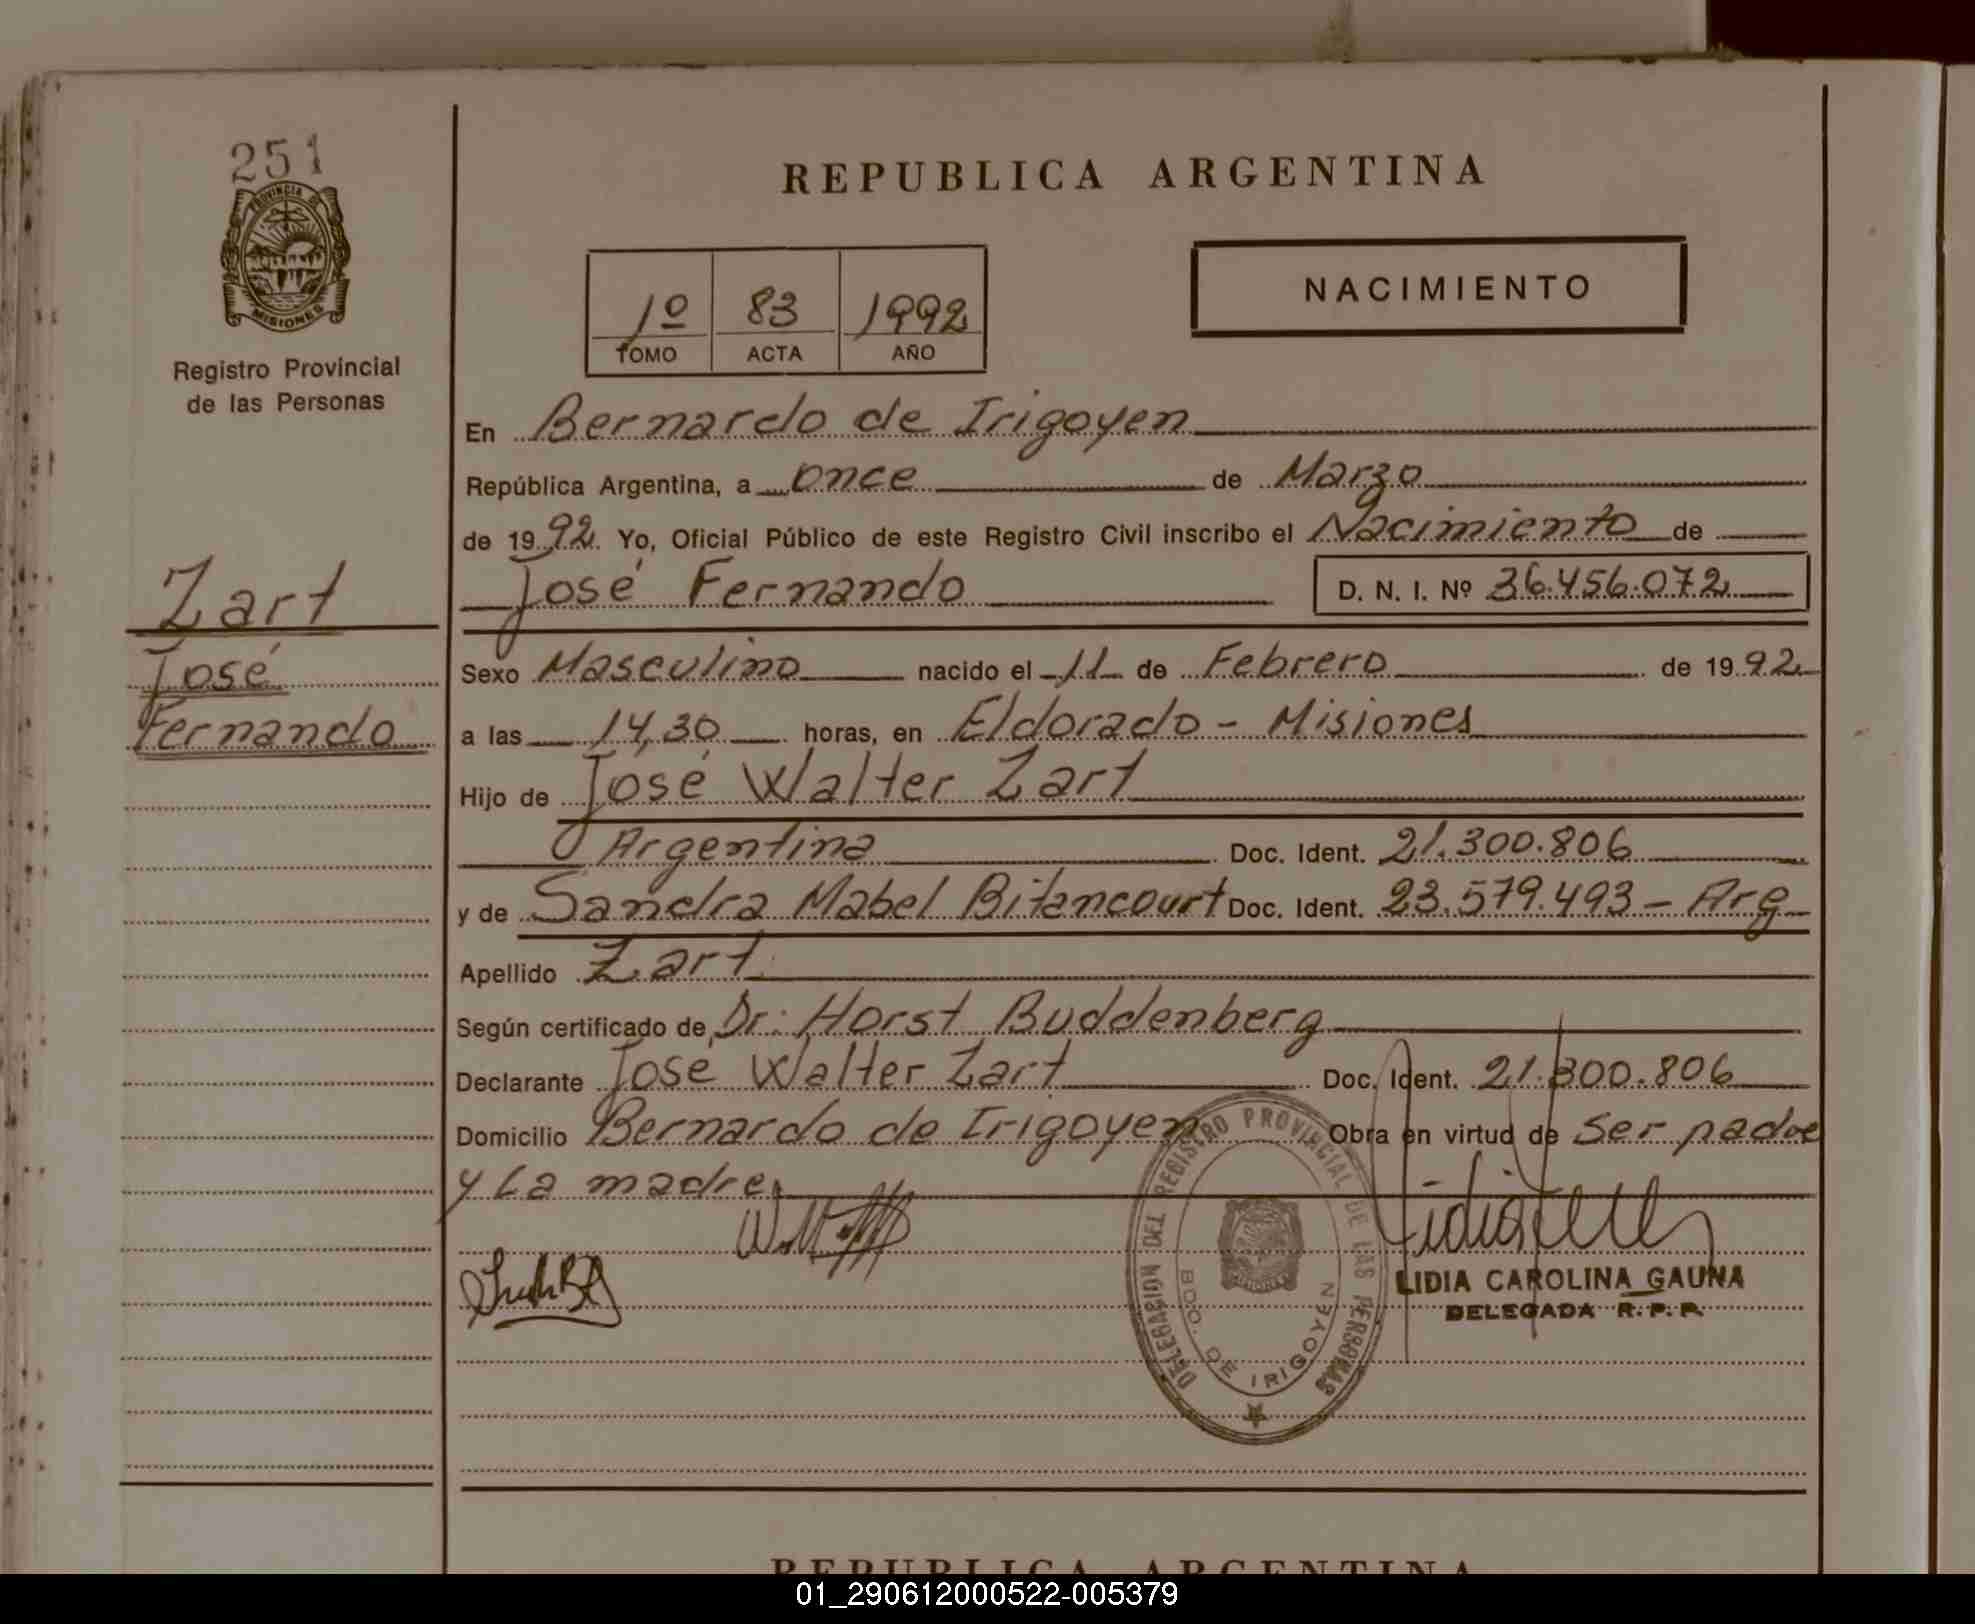 251
PROVINCIA DE
MISIONES
Registro Provincial
de las Personas
Zart
José
Fernando
REPUBLICA ARGENTINA
1º 83 1992
TOMO ACTA AÑO
NACIMIENTO
En Bernardo de Irigoyen
República Argentina, a once de Marzo
de 1992. Yo, Oficial Público de este Registro Civil inscribo el Nacimiento de
José Fernando D. N. I. Nº 36.456.072
Sexo Masculino nacido el 11 de Febrero de 1992
a las 14,30 horas, en Eldorado - Misiones
Hijo de José Walter Zart
Argentina Doc. Ident. 21.300.806
y de Sandra Mabel Bitancourt Doc. Ident. 23.579.493 - Arg
Apellido Zart
Según certificado de Dr: Horst Buddenberg
Declarante José Walter Zart Doc. Ident. 21.300.806
Domicilio Bernardo de Irigoyen Obra en virtud de ser padre
y La madre
DELEGACION DEL REGISTRO PROVINCIAL DE LAS PERSONAS
BDO. DE IRIGOYEN
LIDIA CAROLINA GAUNA
DELEGADA R. P. P.
REPUBLICA ARGENTINA
01_290612000522-005379